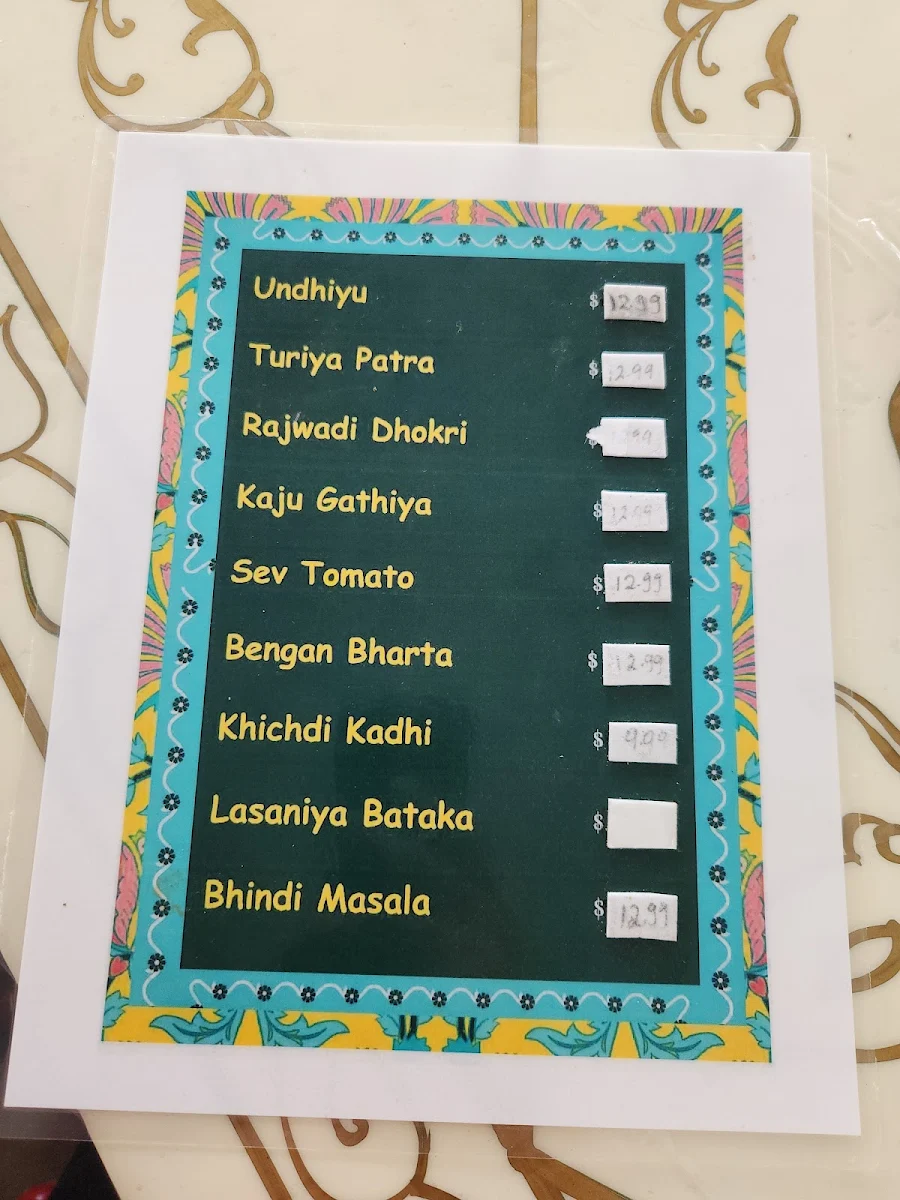 Undhiyu $ 12.99
Turiya Patra $ 12.99
Rajwadi Dhokri
Kaju Gathiya $ 12.99
Sev Tomato $ 12.99
Bengan Bharta $ 12.99
Khichdi Kadhi $ 9.99
Lasaniya Bataka $
Bhindi Masala $ 12.99